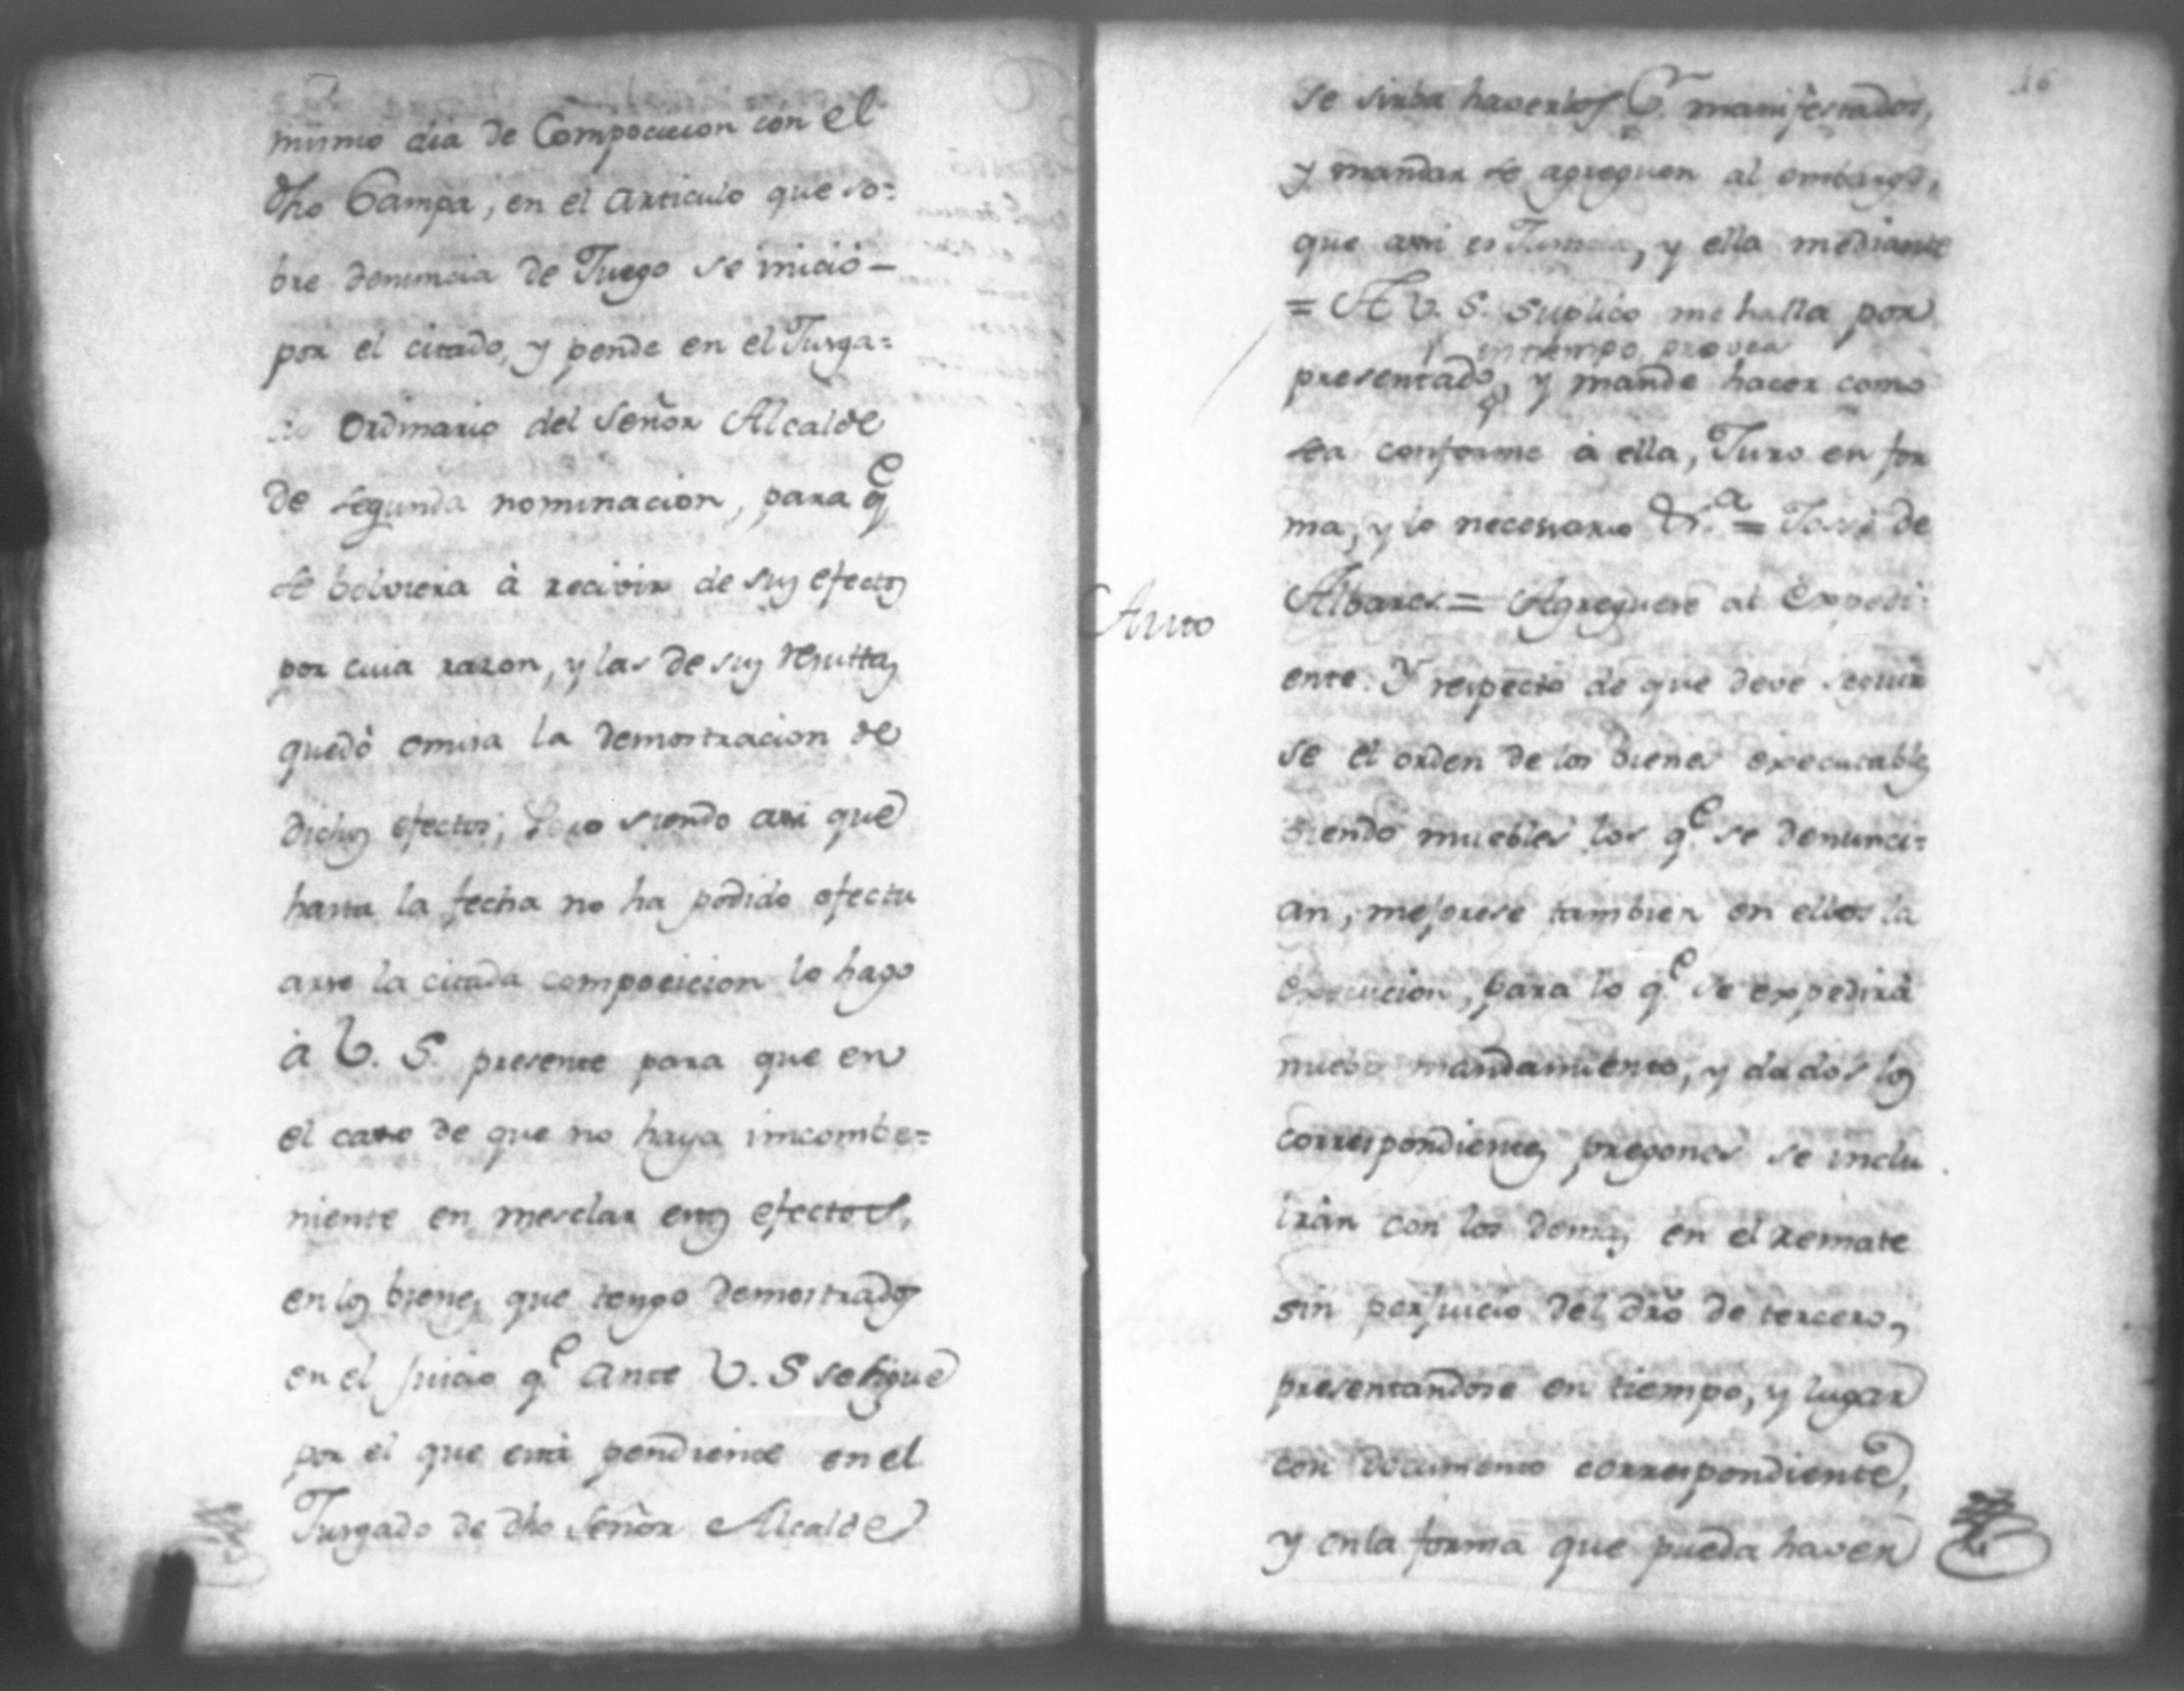 mismo dia de Composicion con el
dho Campa, en el articulo que so=
bre denuncia de Juego se inició –
por el citado, y pende en el Jusga=
do Ordinario del Señor Alcalde
de segunda nominacion, para q.e
se bolviera à recivir de sus efectos
por cuia razon, y las de sus resultas
quedò omisa la demostracion de
dichos efectos; Pero siendo asi que
hasta la fecha no ha podido efectu
arse la citada composicion lo hago
à V. S. presente para que en
el caso de que no haya imcombe=
niente en mesclar estos efectos,
en los bienes que tengo demostrados
en el juicio q.e ante V. S se sigue
por el que està pendiente en el
Jusgado de dho Señor Alcalde
16
se sirba haverlos P.r manifestados,
y mandar se agreguen al embargo,
que assi es Justicia, y ella mediante
= A V. S. suplico me halla por
en tiempo, provea
presentado, y mande hacer como
sea conforme à ella, Juro en for
ma, y lo necessario &.a = José de
Auto
Albares = Agreguese al Expedi
ente. Y respecto de que deve seguir
se el orden de los bienes executables
siendo muebles los q.e se denunci=
an, mejorese tambien en ellos la
execucion, para lo q.e se expedirà
nuebo mandamiento, y dados los
correspondientes pregones se inclu
iràn con los demas en el remate
sin perjuicio del dro de tercero,
presentandose en tiempo, y lugar
con documento correspondiente,
y en la forma que pueda haver